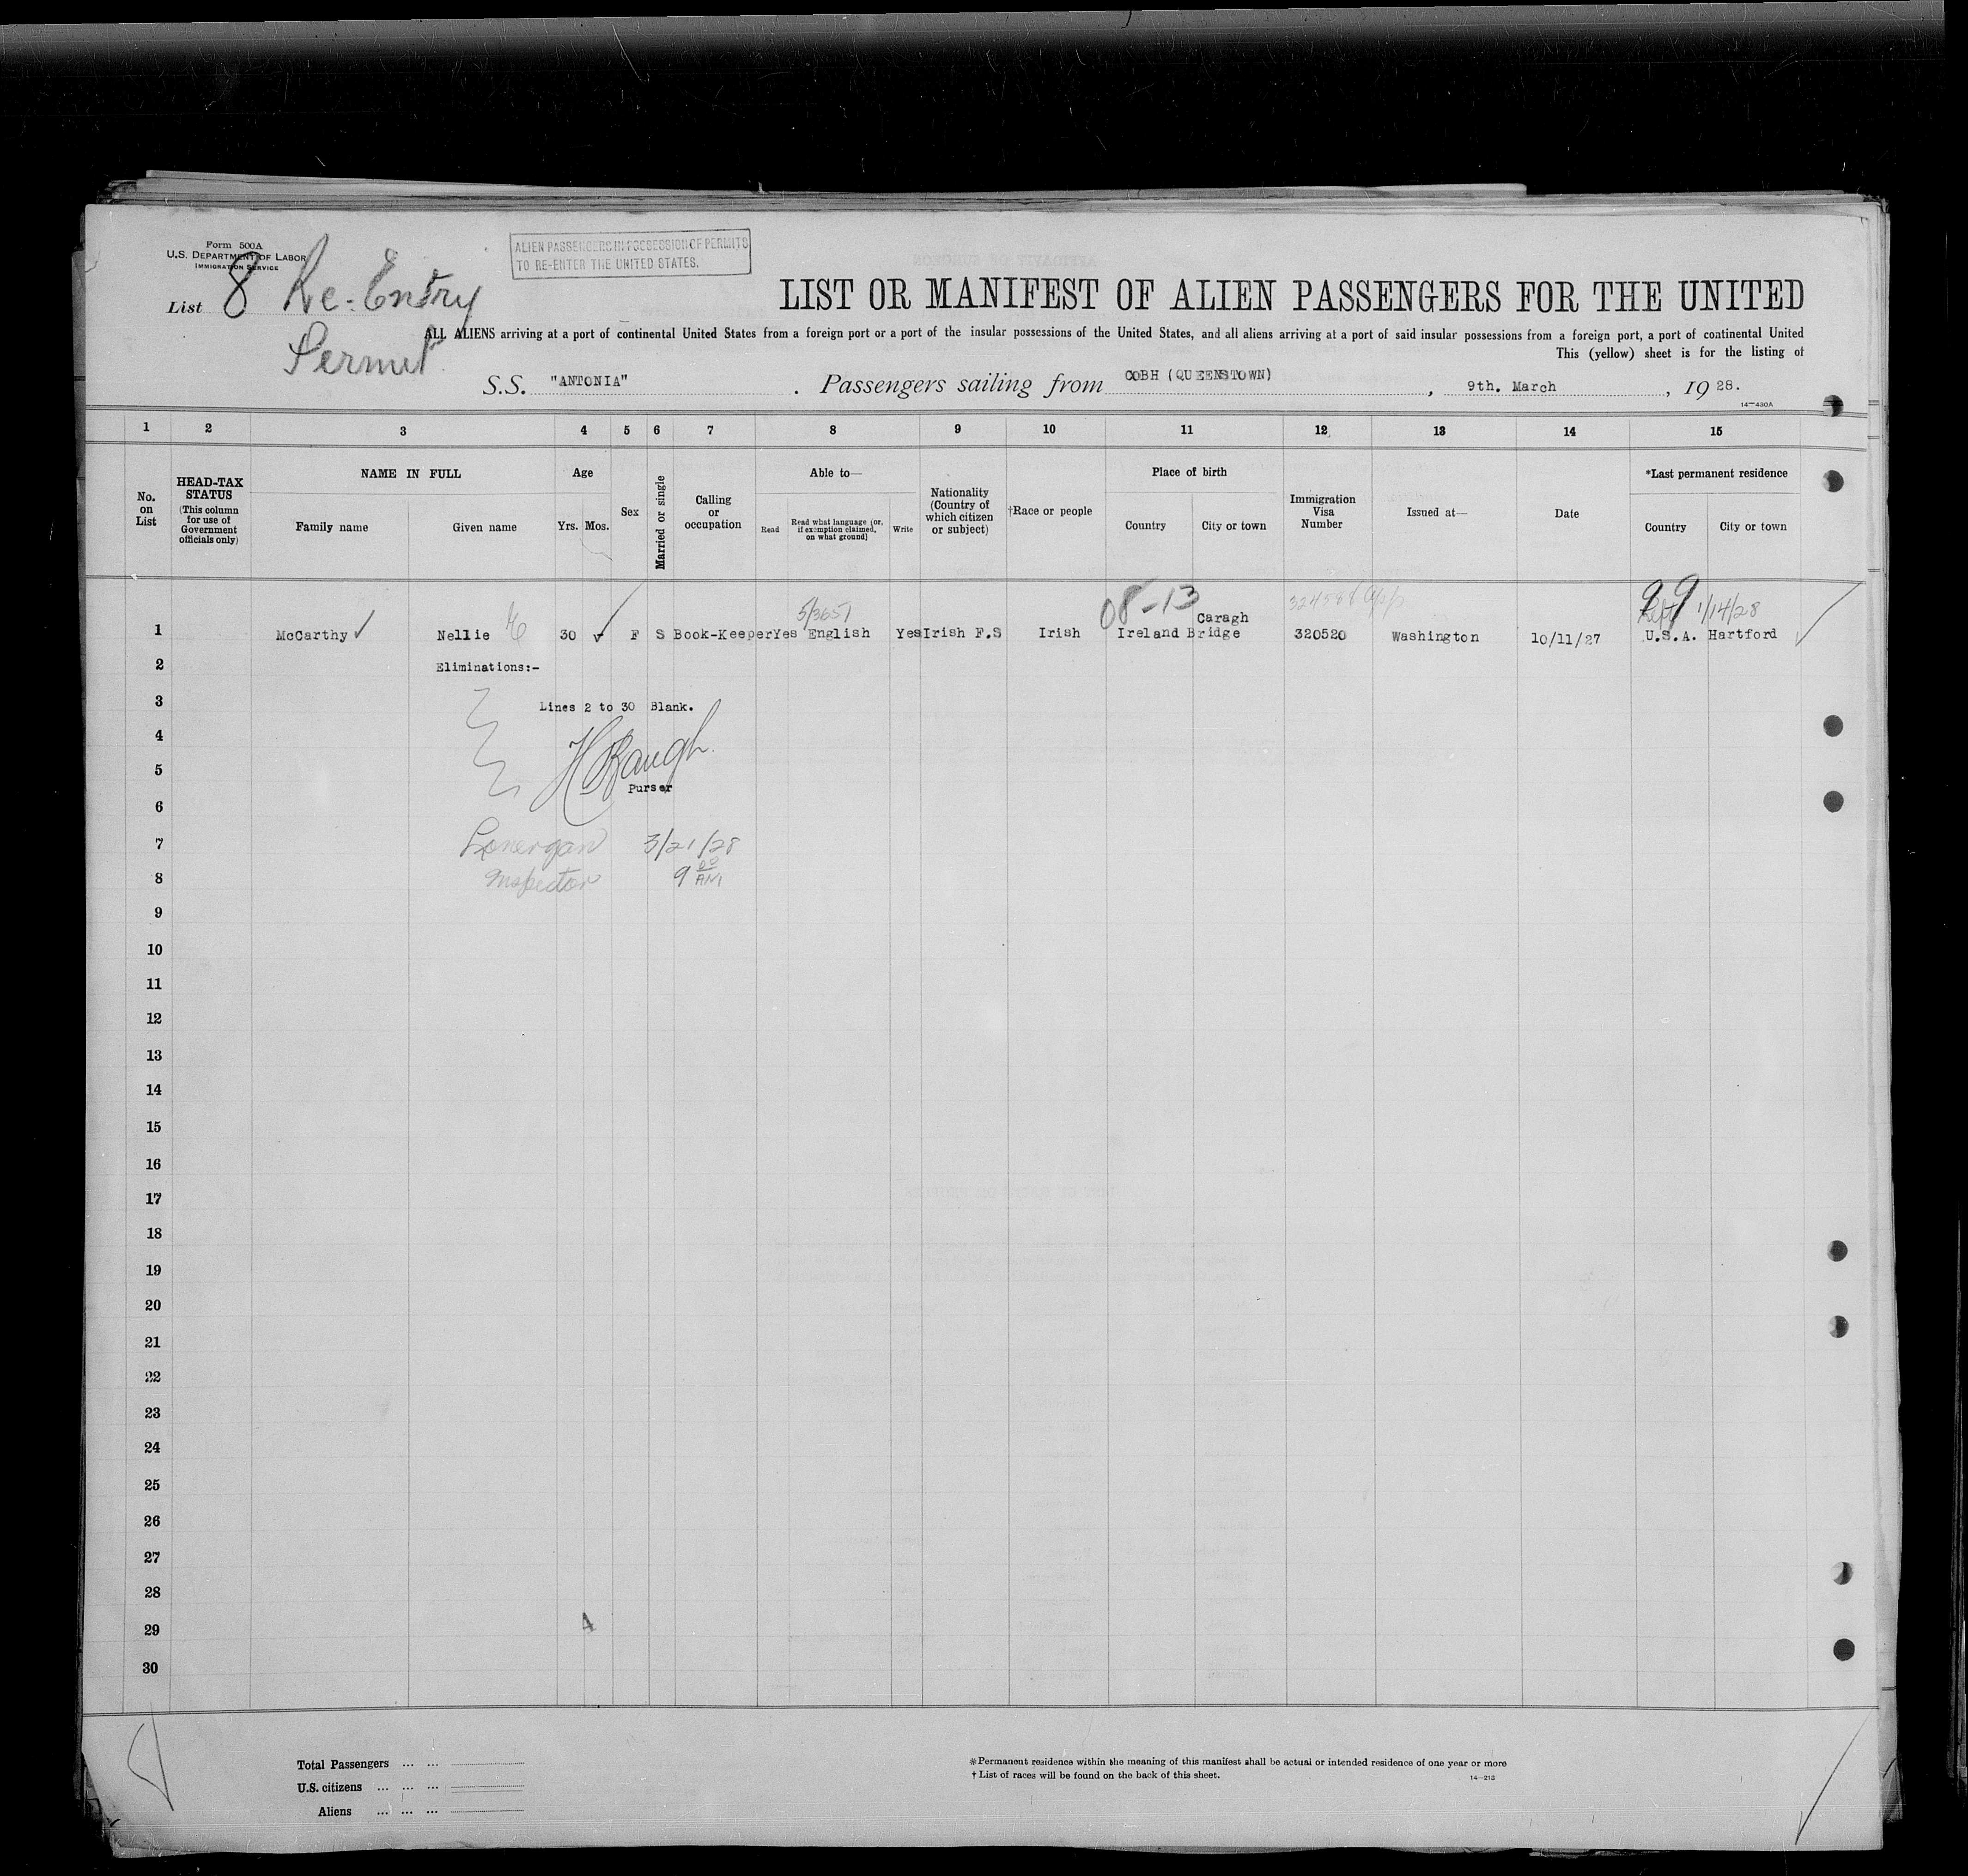 Form 500A
U.S. DEPARTMENT OF LABOR
IMMIGRATION SERVICE
ALIEN PASSENGERS IN POSSESSION OF PERMITS
TO RE-ENTER THE UNITED STATES.
List 8 Re-Entry
Permit
LIST OR MANIFEST OF ALIEN PASSENGERS FOR THE UNITED
ALL ALIENS arriving at a port of continental United States from a foreign port or a port of the insular possessions of the United States, and all aliens arriving at a port of said insular possessions from a foreign port, a port of continental United
This (yellow) sheet is for the listing of
S.S. "ANTONIA" . Passengers sailing from COBH (QUEENSTOWN) , 9th. March , 19 28.
14—430A
1 2 3 4 5 6 7 8 9 10 11 12 13 14 15
No. on List
HEAD-TAX STATUS (This column for use of Government officials only)
NAME IN FULL
Family name
Given name
Age
Yrs. Mos.
Sex
Married or single
Calling or occupation
Able to—
Read
Read what language (or, if exemption claimed, on what ground)
Write
Nationality (Country of which citizen or subject)
†Race or people
Place of birth
Country
City or town
Immigration Visa Number
Issued at—
Date
*Last permanent residence
Country
City or town
5/3651 08-13 Caragh 99 1/14/28
1 McCarthy ✓ Nellie 30 F S Book-Keeper Yes English Yes Irish F.S Irish Ireland Bridge 320520 Washington 10/11/27 U.S.A. Hartford
2 Eliminations:-
3 Lines 2 to 30 Blank.
4 H Baugh
5 Purser
6
7 Lonergan 3/21/28
8 Inspector 9 00 AM
9
10
11
12
13
14
15
16
17
18
19
20
21
22
23
24
25
26
27
28
29 4
30
Total Passengers ... ...
U.S. citizens ... ... ...
Aliens ... ... ...
*Permanent residence within the meaning of this manifest shall be actual or intended residence of one year or more
† List of races will be found on the back of this sheet.
14—213